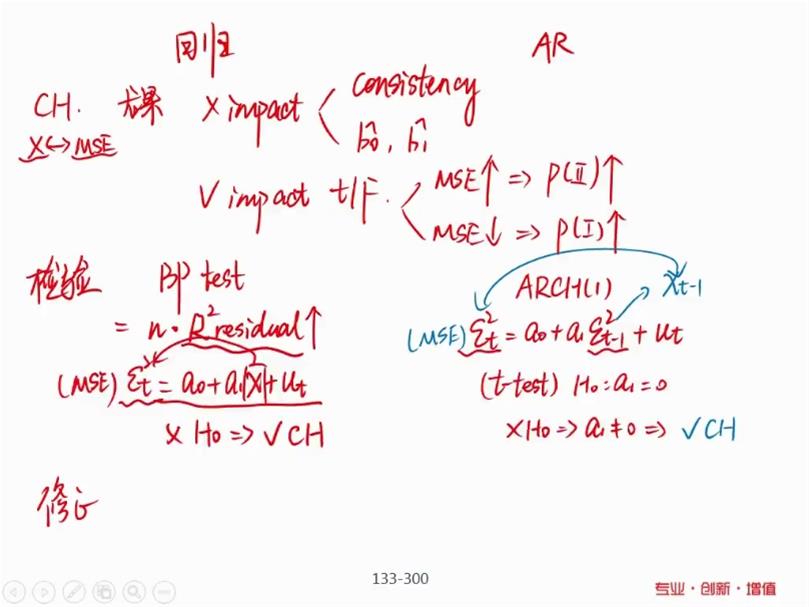 回归
AR
CH. 后果 X impact consistency
X↔MSE
b̂0, b̂1
V impact t/F. MSE↑ => P(II)↑
MSE↓ => P(I)↑
检验 BP test
= n · R²residual↑
(MSE) εt² = a0 + a1|X| + ut
X H0 => √CH
ARCH(1)
Xt-1
(MSE) εt² = a0 + a1 εt-1² + ut
(t-test) H0: a1 = 0
X H0 => a1 ≠ 0 => √CH
修正
133-300
专业·创新·增值